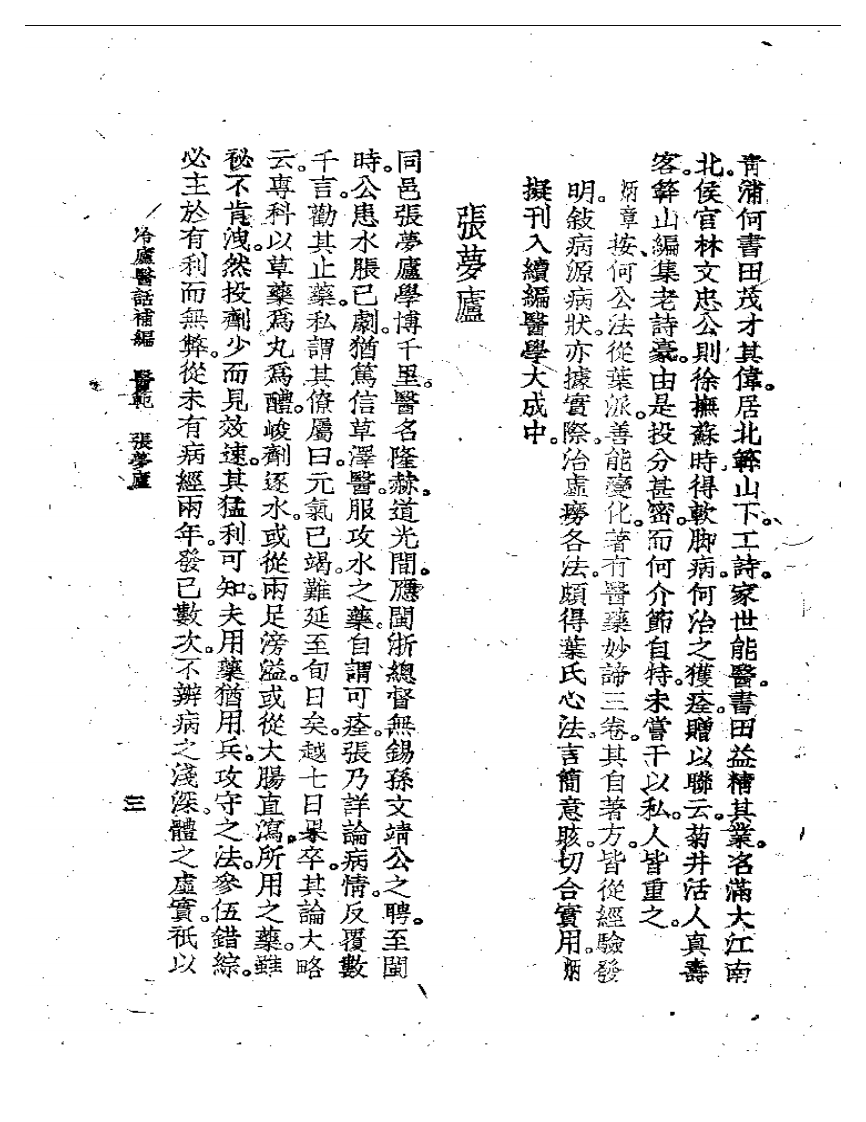 青浦何書田茂才其偉。居北簳山下。工詩。家世能醫。書田益精其業。名滿大江南
北。侯官林文忠公則徐撫蘇時得軟脚病。何治之獲痊。贈以聯云。菊井活人真壽
客。簳山編集老詩豪。由是投分甚密。而何介節自持。未嘗干以私。人皆重之。
炳章按、何公法從葉派。善能變化。著有醫藥妙諦三卷。其自著方。皆從經驗發
明。敍病源病狀。亦據實際。治虛癆各法。頗得葉氏心法。言簡意賅。切合實用。炳
擬刊入續編醫學大成中。
張夢廬
同邑張夢廬學博千里。醫名隆赫。道光間。應閩浙總督無錫孫文靖公之聘。至閩
時。公患水脹已劇。猶篤信草澤醫。服攻水之藥。自謂可痊。張乃詳論病情。反覆數
千言。勸其止藥。私謂其僚屬曰。元氣已竭。難延至旬日矣。越七日果卒。其論大略
云。專科以草藥爲丸爲醴。峻劑逐水。或從兩足滂溢。或從大腸直瀉。所用之藥。雖
秘不肯洩。然投劑少而見效速。其猛利可知。夫用藥猶用兵。攻守之法。參伍錯綜。
必主於有利而無弊。從未有病經兩年。發已數次。不辨病之淺深。體之虛實。祇以
冷廬醫話補編 醫範 張夢廬
三